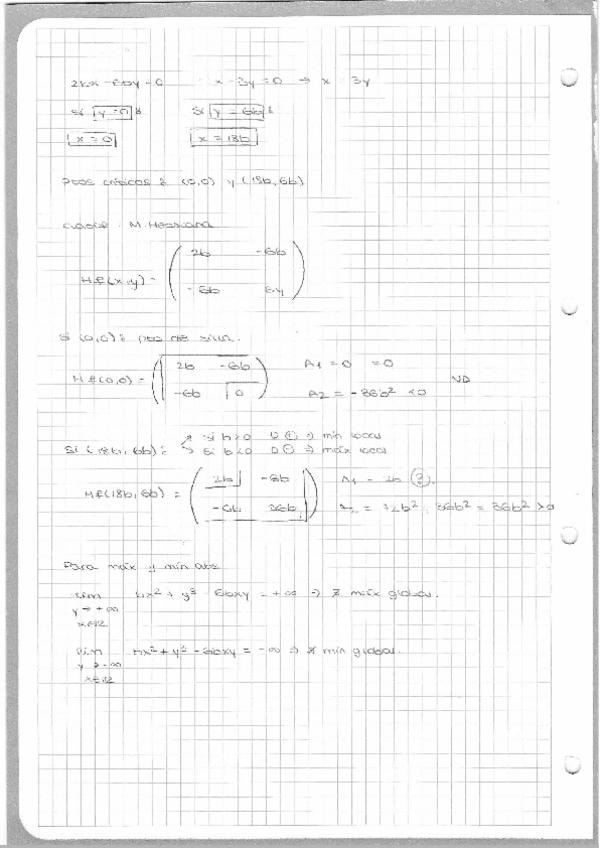 2bx - 6by = 0    x - 3y = 0 → x = 3y
si y = 0 :    si y = 6b :
x = 0    x = 18b
ptos críticos : (0,0) y (18b, 6b)
M. Hessiana
Hf(x,y) = ( 2b    -6b
-6b    6y )
Si (0,0) : pto de sillín.
Hf(0,0) = ( 2b    -6b    A1 = 0 = 0
-6b    0 )    A2 = -36b² < 0    ND
Si (18b, 6b) :    si b>0 D⊕ ⇒ mín local
si b<0 D⊖ ⇒ máx local
Hf(18b, 6b) = ( 2b    -6b    A1 = 2b (?).
-6b    36b )    A2 = 72b² - 36b² = 36b² > 0
Para máx y mín abs
lim    bx² + y³ - 6bxy = +∞ ⇒ ∄ máx global.
y → +∞
x∈ℝ
lim    bx² + y³ - 6bxy = -∞ ⇒ ∄ mín global.
y → -∞
x∈ℝ